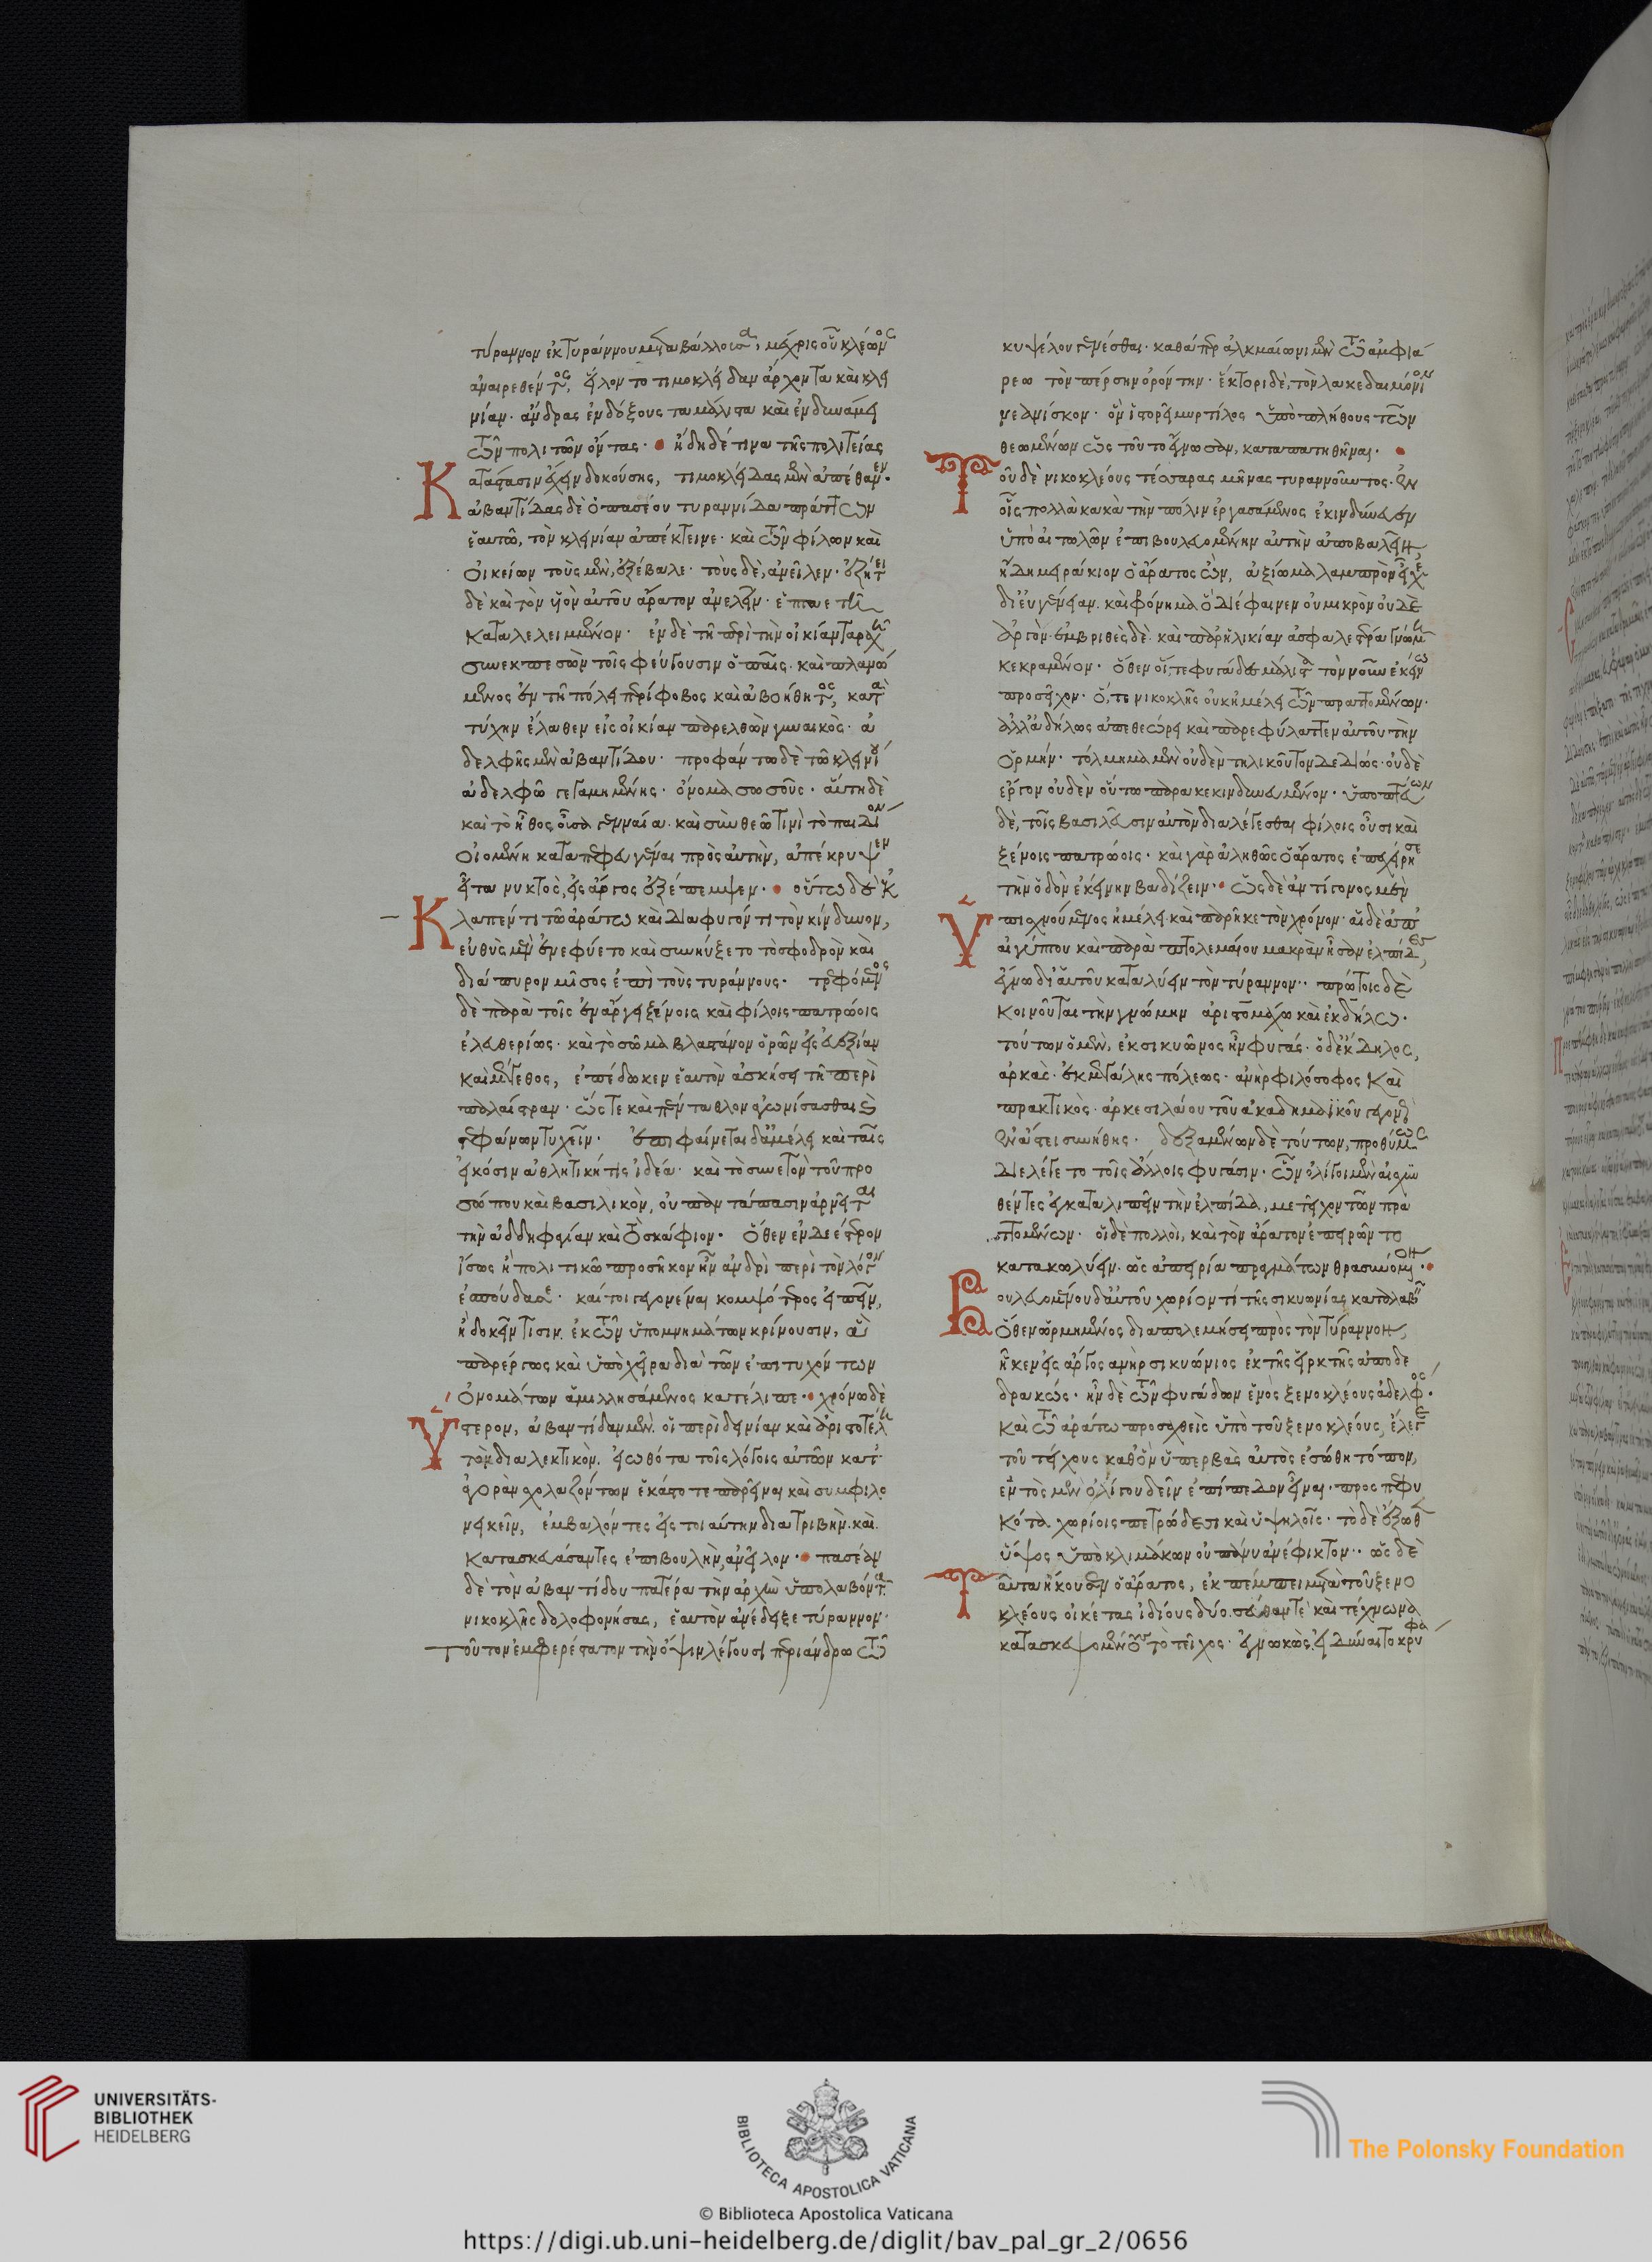 τύραννον ἐκ τυράννου μεταβάλλουσα, μέχρις οὗ κλέωνος
ἀναιρεθέντος, εἵλοντο τιμοκλείδαν ἄρχοντα καὶ κλει
νίαν· ἄνδρας ἐνδόξους τα μάλιστα καὶ ἐν δυνάμει
τῶν πολιτῶν ὄντας· ἤδη δέ τινα τῆς πολιτείας
Κ ατάστασιν ἔχειν δοκούσης, τιμοκλείδας μὲν ἀπέθανεν·
ἀβαντίδας δὲ ὁ πασέου τυραννίδα πράττων
ἑαυτῶ, τὸν κλεινίαν ἀπέκτεινε· καὶ τῶν φίλων καὶ
οἰκείων τοὺς μὲν, ἐξέβαλε· τοὺς δὲ, ἀνεῖλεν· ἐζήτει
δὲ καὶ τὸν υἱὸν αὐτοῦ ἄρατον ἀνελεῖν· ἑπταετῆ
καταλελειμμένον· ἐν δὲ τῆ περὶ τὴν οἰκίαν ταραχῆ
συνεκπεσὼν τοῖς φεύγουσιν ὁ παῖς· καὶ πλανώ
μενος ἐν τῆ πόλει περίφοβος καὶ ἀβοήθητος, κατὰ
τύχην ἔλαθεν εἰς οἰκίαν παρελθὼν γυναικὸς· ἀ
δελφῆς μὲν ἀβαντίδου· προφάντω δὲ τῶ κλεινίου
ἀδελφῶ γεγαμημένης· ὄνομα σωσοῦς· αὕτη δὲ
καὶ τὸ ἦθος οὖσα γενναία· καὶ σὺν θεῶ τινὶ τὸ παιδίον
οἰομένη καταπεφευγέναι πρὸς αὐτὴν, ἀπέκρυψεν
εἶτα νυκτὸς, εἰς ἄργος ἐξέπεμψεν· οὕτω δὲ ἐκ
Κ λαπέντι τῶ ἀράτω καὶ διαφυγόντι τὸν κίνδυνον,
εὐθὺς μὲν ἐνεφύετο καὶ συνηύξετο τὸ σφοδρὸν καὶ
διάπυρον μῖσος ἐπὶ τοὺς τυράννους· τρεφόμενος
δὲ παρὰ τοῖς ἐν ἄργει ξένοις καὶ φίλοις πατρώοις
ἐλευθερίως· καὶ τὸ σῶμα βλαστάνον ὁρῶν εἰς εὐεξίαν
καὶ μέγεθος, ἐπέδωκεν ἑαυτὸν ἀσκήσει τῆ περὶ
παλαίστραν· ὥστε καὶ πένταθλον ἀγωνίσασθαι καὶ
στεφάνων τυχεῖν· ἐπιφαίνεται δ' ἀμέλει καὶ ταῖς
εἰκόσιν ἀθλητική τις ἰδέα· καὶ τὸ συνετὸν τοῦ προ
σώπου καὶ βασιλικὸν, οὐ παντάπασιν ἀρνεῖται
τὴν ἀδδηφαγίαν καὶ τὸ σκάφιον· ὅθεν ἐνδεέστερον
ἴσως ἢ πολιτικῶ προσῆκον ἦν ἀνδρὶ περὶ τὸν λόγον
ἐσπούδασε· καίτοι γεγονέναι κομψότερος εἰπεῖν,
ἢ δοκεῖν τισιν· ἐκ τῶν ὑπομνημάτων κρίνουσιν, ἃ
παρέργως καὶ ὑπὸ χεῖρα διὰ τῶν ἐπιτυχόντων
ὀνομάτων ἁμιλλησάμενος κατέλιπε· χρόνω δὲ
Ὕ στερον, ἀβαντίδαν μὲν· οἱ περὶ δεινίαν καὶ ἀριστοτέλη
τὸν διαλεκτικὸν· εἰωθότα τοῖς λόγοις αὐτῶν κατ'
ἀγορὰν σχολαζόντων ἑκάστοτε παρεῖναι καὶ συμφιλο
νεικεῖν, ἐμβαλόντες εἰς τοιαύτην διατριβὴν· καὶ
κατασκευάσαντες ἐπιβουλὴν, ἀνεῖλον· πασέαν
δὲ τὸν ἀβαντίδου πατέρα τὴν ἀρχὴν ὑπολαβόντα
νικοκλῆς δολοφονήσας, ἑαυτὸν ἀνέδειξε τύραννον·
τοῦτον ἐμφερέστατον τὴν ὄψιν λέγουσι περιάνδρω τῶ
κυψέλου γενέσθαι· καθάπερ ἀλκμαίωνι μὲν τῶ ἀμφια
ρεω τὸν πέρσην ὀρόντην· ἕκτορι δὲ, τὸν λακεδαιμόνιον
νεανίσκον· ὃν ἱστορεῖ μυρτίλος ὑπὸ πλήθους τῶν
θεωμένων ὡς τοῦτο ἔγνωσαν, καταπατηθῆναι·
Τ οῦ δὲ νικοκλέους τέσσαρας μῆνας τυραννοῦντος· ἐν
οἷς πολλὰ κακὰ τὴν πόλιν ἐργασάμενος ἐκινδύνευσεν
ὑπὸ αἰτωλῶν ἐπιβουλευομένην αὐτὴν ἀποβαλεῖν,
ἤδη μειράκιον ὁ ἄρατος ὢν, ἀξίωμα λαμπρὸν εἶχε
δι' εὐγένειαν· καὶ φρόνημα ὃ διέφαινεν οὐ μικρὸν οὐδὲ
ἀργὸν· ἐμβριθὲς δὲ· καὶ παρ' ἡλικίαν ἀσφαλεστέρα γνώμη
κεκραμένον· ὅθεν οἵ τε φυγάδες μάλιστα τὸν νοῦν ἐκείνω
προσεῖχον· ὅ, τε νικοκλῆς οὐκ ἠμέλει τῶν πραττομένων·
ἀλλ' ἀδήλως ἀπεθεώρει καὶ παρεφύλαττεν αὐτοῦ τὴν
ὁρμήν· τόλμημα μὲν οὐδὲν τηλικοῦτον δεδιώς· οὐδὲ
ἔργον οὐδὲν οὕτω παρακεκινδυνευμένον· ὑποπτεύων
δὲ, τοῖς βασιλεῦσιν αὐτὸν διαλέγεσθαι φίλοις οὖσι καὶ
ξένοις πατρώοις· καὶ γὰρ ἀληθῶς ὁ ἄρατος ἐπεχείρησε
τὴν ὁδὸν ἐκείνην βαδίζειν· ὡς δὲ ἀντίγονος μὲν
Ὑ πισχνούμενος ἠμέλει καὶ παρῆκε τὸν χρόνον· αἱ δὲ ἀπ'
αἰγύπτου καὶ παρὰ πτολεμαίου μακρὰν ἦσαν ἐλπίδες,
ἔγνω δι' αὑτοῦ καταλύειν τὸν τύραννον· πρώτοις δὲ
κοινοῦται τὴν γνώμην ἀριστομάχω καὶ ἐκδήλω·
τούτων ὁ μὲν, ἐκ σικυῶνος ἦν φυγάς· ὁ δ' ἔκδηλος,
ἀρκὰς· ἐκ μεγάλης πόλεως· ἀνὴρ φιλόσοφος καὶ
πρακτικὸς· ἀρκεσιλάου τοῦ ἀκαδημαϊκοῦ γεγονὼς
ἐν ἄστει συνήθης· δεξαμένων δὲ τούτων, προθύμως
διελέγετο τοῖς ἄλλοις φυγάσιν· ὧν ὀλίγοι μὲν αἰσχυν
θέντες ἐγκαταλιπεῖν τὴν ἐλπίδα, μετεῖχον τῶν πρα
ττομένων· οἱ δὲ πολλοὶ, καὶ τὸν ἄρατον ἐπειρῶντο
κατακωλύειν· ὡς ἀπειρία πραγμάτων θρασυνόμενον·
Β ουλευομένου δ' αὐτοῦ χωρίον τί τῆς σικυωνίας καταλαβεῖν
ὅθεν ὡρμημένος διαπολεμήσει πρὸς τὸν τύραννον,
ἧκεν εἰς ἄργος ἀνὴρ σικυώνιος ἐκ τῆς εἱρκτῆς ἀποδε
δρακώς· ἦν δὲ τῶν φυγάδων ἑνὸς ξενοκλέους ἀδελφός·
καὶ τῶ ἀράτω προσαχθεὶς ὑπὸ τοῦ ξενοκλέους, ἔλεγε
τοῦ τείχους καθ' ὃν ὑπερβὰς αὐτὸς ἐσώθη τόπον,
ἐντὸς μὲν ὀλίγου δεῖν ἐπίπεδον εἶναι· προσπεφυ
κότα χωρίοις πετρώδεσι καὶ ὑψηλοῖς· τὸ δὲ ἔξωθεν
ὕψος ὑπὸ κλιμάκων οὐ πάνυ ἀνέφικτον· ὡς δὲ
Τ αῦτα ἤκουσεν ὁ ἄρατος, ἐκπέμπει μετὰ τοῦ ξενο
κλέους οἰκέτας ἰδίους δύο· σεύθαν τὲ καὶ τέχνωνα
κατασκεψομένους τὸ τεῖχος· ἐγνωκὼς· εἰ δύναιτο κρύφα
UNIVERSITÄTS-
BIBLIOTHEK
HEIDELBERG
BIBLIOTECA APOSTOLICA VATICANA
The Polonsky Foundation
© Biblioteca Apostolica Vaticana
https://digi.ub.uni-heidelberg.de/diglit/bav_pal_gr_2/0656